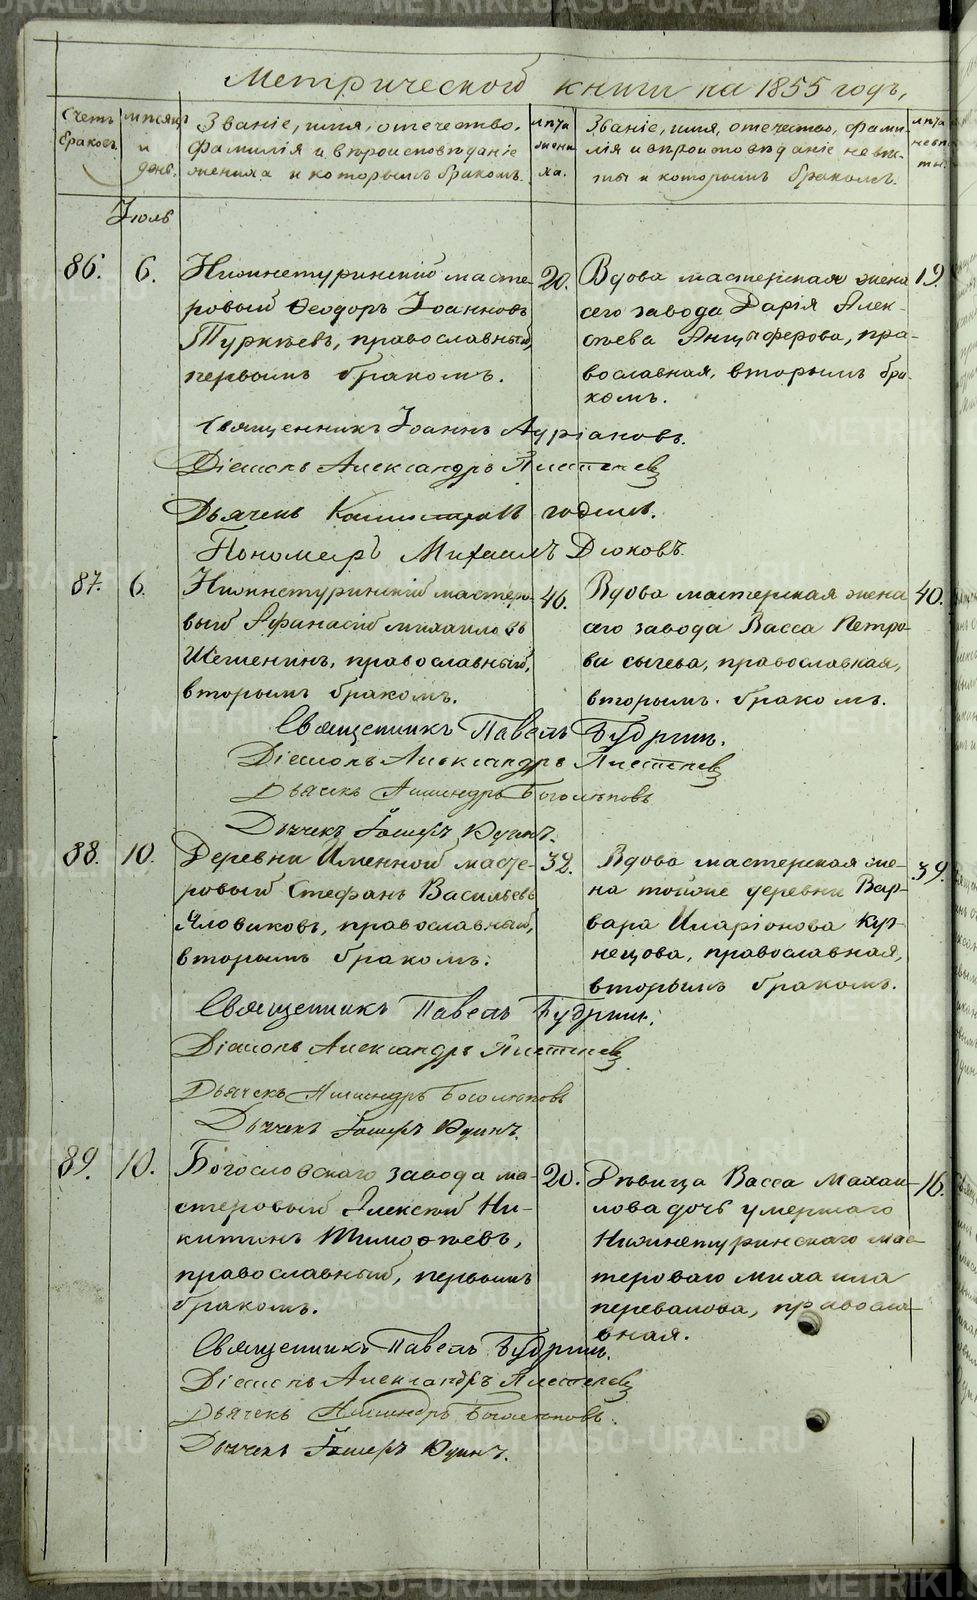 Метрической книги на 1855 годъ,
Счетъ браковъ.
Мѣсяцъ и день.
Званіе, имя, отечество,
фамилія и вѣроисповѣданіе
жениха и которымъ бракомъ.
Лѣта жениха.
Званіе, имя, отечество, фами-
лія и вѣроисповѣданіе невѣс-
ты и которымъ бракомъ.
Лѣта невѣсты.
Іюль
86. 6. Нижнетуринскій масте-
ровый Ѳеодоръ Іоанновъ
Туркѣевъ, православный,
первымъ бракомъ.
20.
Вдова мастерская жена
сего завода Дарія Алек-
сѣева Анцыферова, пра-
вославная, вторымъ бра-
комъ.
19.
Священникъ Іоаннъ Адріановъ.
Діаконъ Александръ
Дьячекъ
Пономарь Михаилъ Дюковъ.
87. 6. Нижнетуринскій мастеро-
вый Афанасій Михаиловъ
Шешенинъ, православный,
вторымъ бракомъ.
46.
Вдова мастерская жена
сего завода Васса Петро-
ва Сычева, православная,
вторымъ бракомъ.
40.
Священникъ Павелъ Будринъ.
Діаконъ Александръ
Дьячекъ Боголѣповъ
Дьячекъ Юдинъ.
88. 10. Деревни Именной масте-
ровый Стефанъ Васильевъ
Яловиковъ, православный,
вторымъ бракомъ.
32.
Вдова мастерская же-
на тойже деревни Вар-
вара Иларіонова Куз-
нецова, православная,
вторымъ бракомъ.
39.
Священникъ Павелъ Будрин.
Діаконъ Александръ
Дьячекъ Боголѣповъ
Дьячекъ Юдинъ.
89. 10. Богословскаго завода ма-
стеровый Алексѣй Ни-
китинъ Тимоѳѣевъ,
православный, первымъ
бракомъ.
20.
Дѣвица Васса Михаи-
лова дочь умершаго
Нижнетуринскаго мас-
тероваго Михаила
Перевалова, правосла-
вная.
16.
Священникъ Павелъ Будрин.
Діаконъ Александръ
Дьячекъ Боголѣповъ.
Дьячекъ Юдинъ.
METRIKI.GASO-URAL.RU